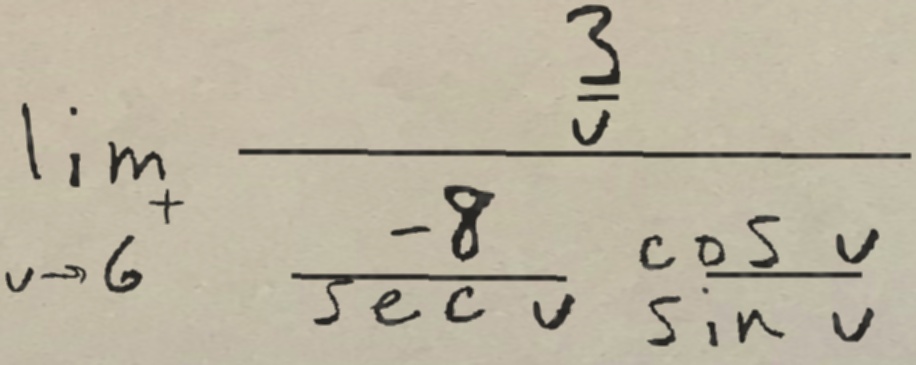 \lim_{v \to 6^+} \frac{\frac{3}{v}}{\frac{-8}{\sec v} \frac{\cos v}{\sin v}}